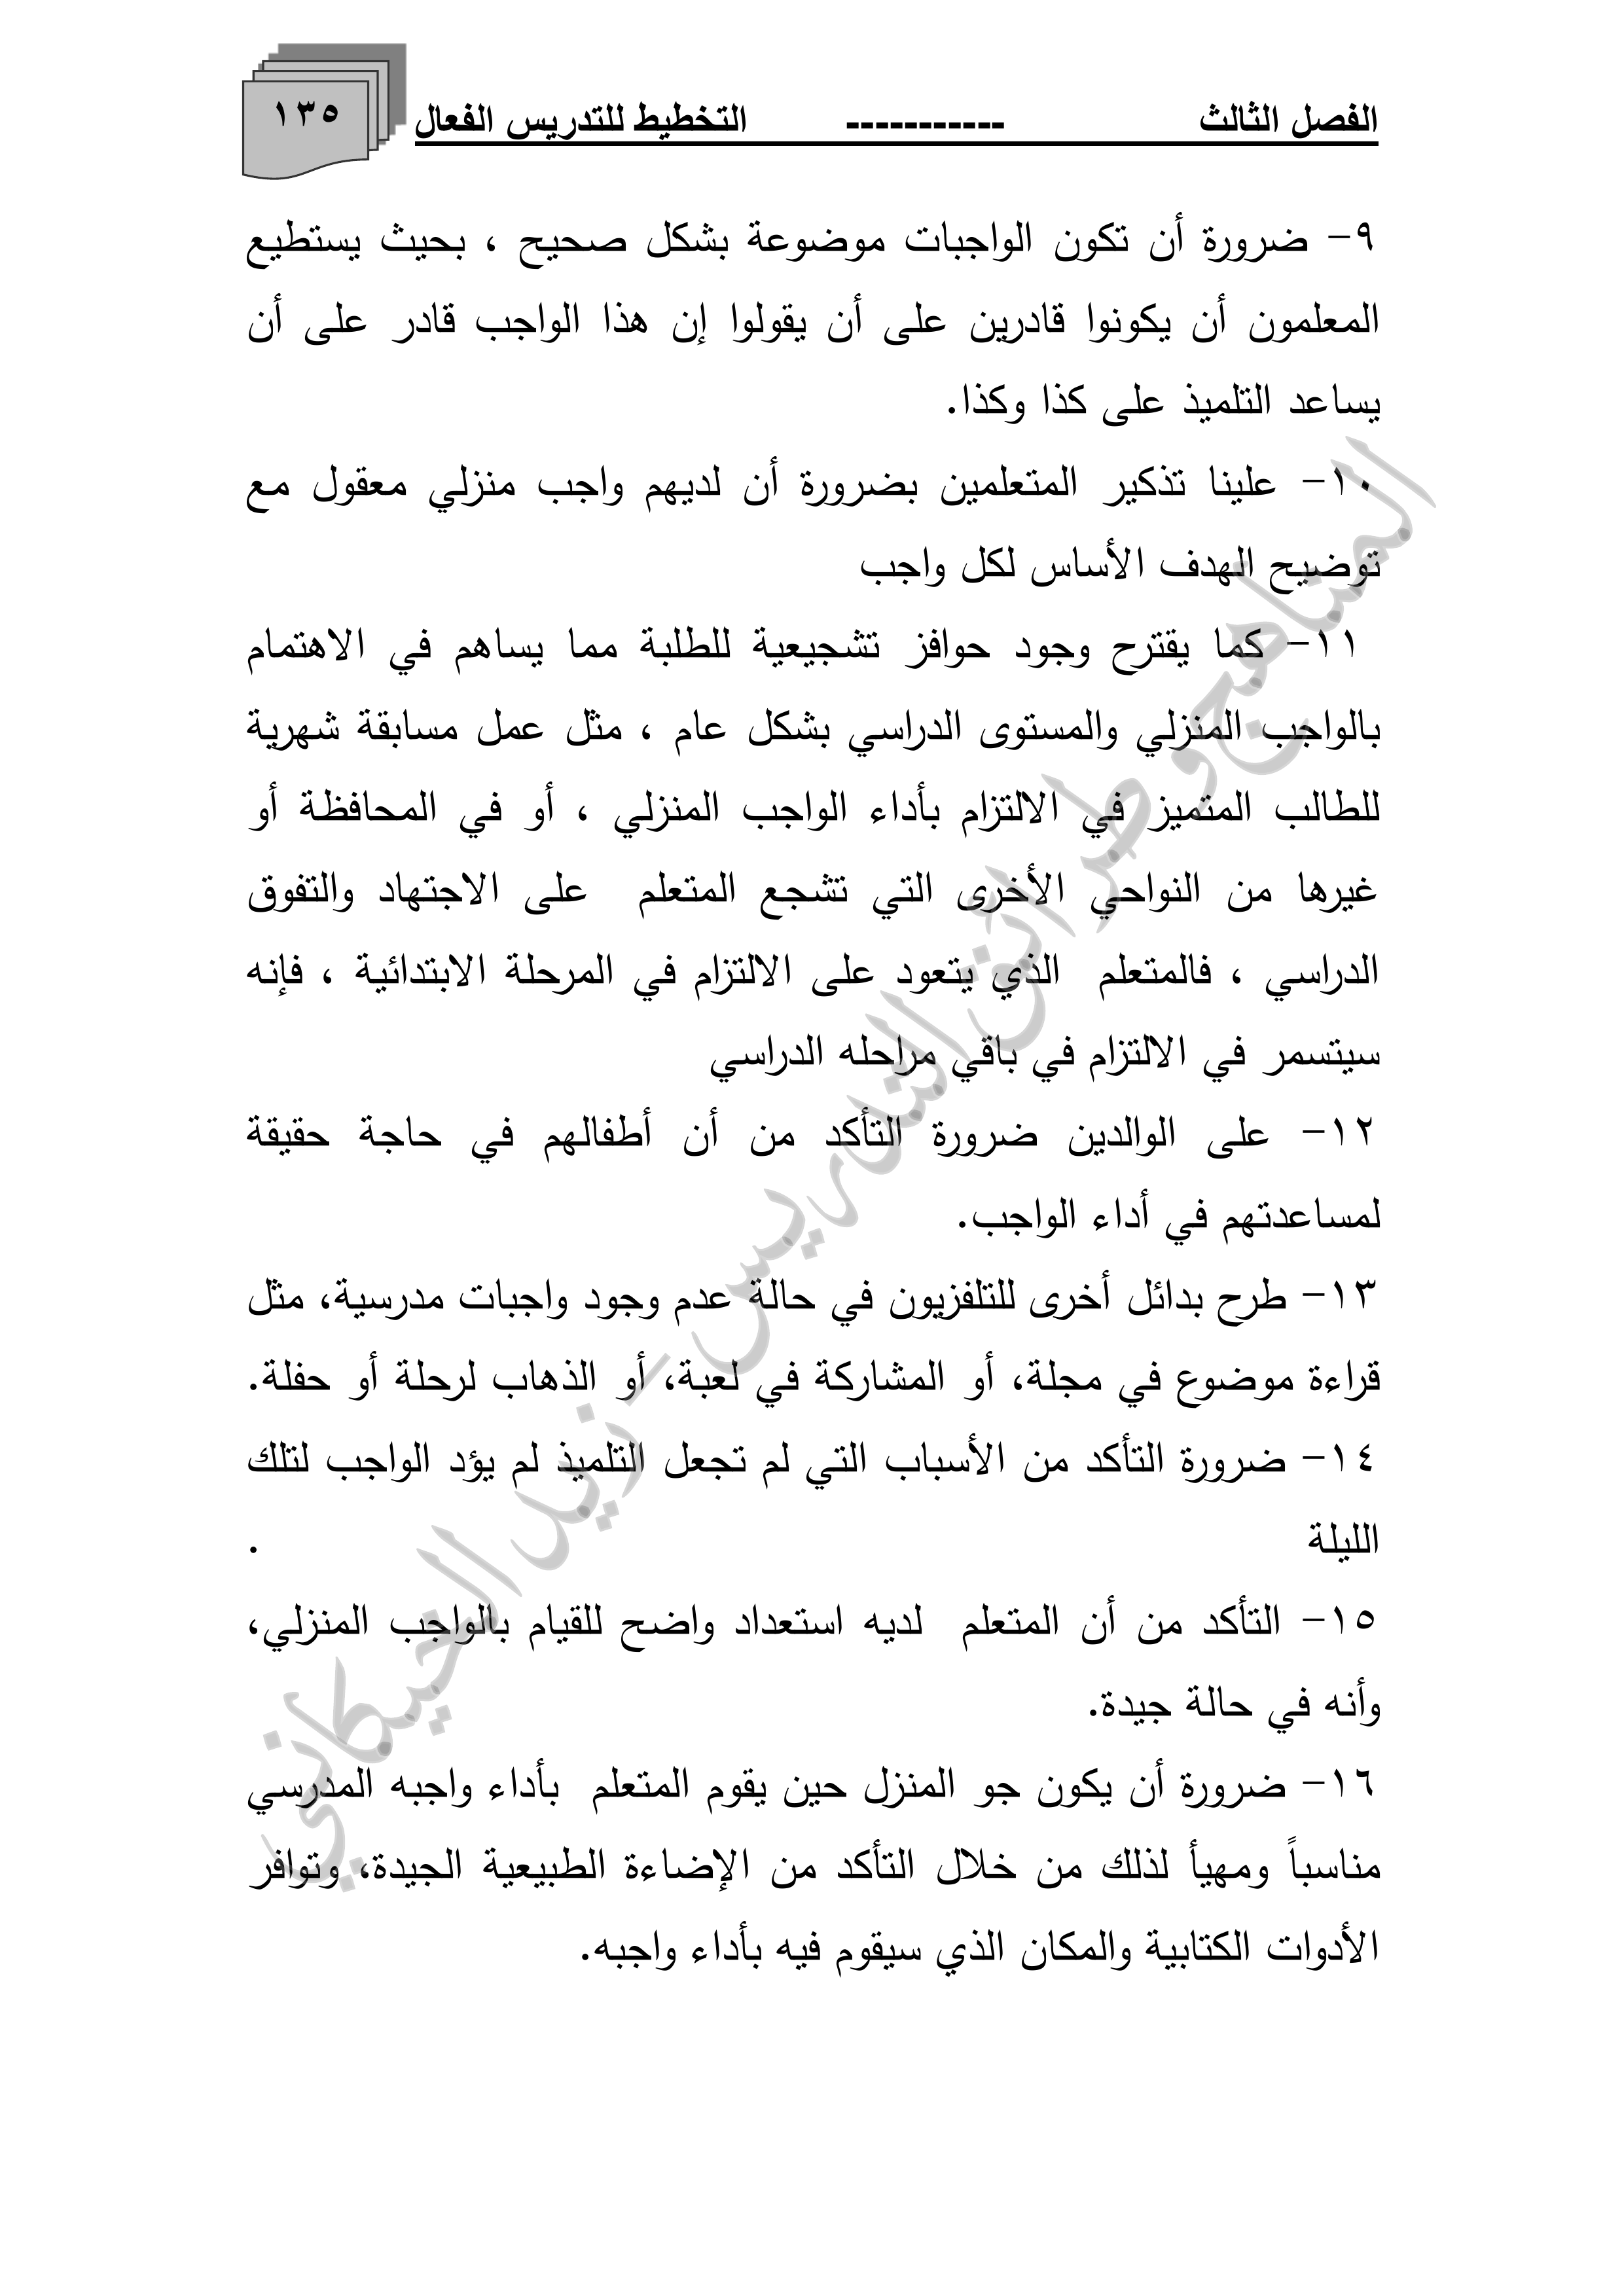 الفصل الثالث ----------- التخطيط للتدريس الفعال
١٣٥
٩- ضرورة أن تكون الواجبات موضوعة بشكل صحيح ، بحيث يستطيع
المعلمون أن يكونوا قادرين على أن يقولوا إن هذا الواجب قادر على أن
يساعد التلميذ على كذا وكذا.
١٠- علينا تذكير المتعلمين بضرورة أن لديهم واجب منزلي معقول مع
توضيح الهدف الأساس لكل واجب
١١- كما يقترح وجود حوافز تشجيعية للطلبة مما يساهم في الاهتمام
بالواجب المنزلي والمستوى الدراسي بشكل عام ، مثل عمل مسابقة شهرية
للطالب المتميز في الالتزام بأداء الواجب المنزلي ، أو في المحافظة أو
غيرها من النواحي الأخرى التي تشجع المتعلم على الاجتهاد والتفوق
الدراسي ، فالمتعلم الذي يتعود على الالتزام في المرحلة الابتدائية ، فإنه
سيتسمر في الالتزام في باقي مراحله الدراسي
١٢- على الوالدين ضرورة التأكد من أن أطفالهم في حاجة حقيقة
لمساعدتهم في أداء الواجب.
١٣- طرح بدائل أخرى للتلفزيون في حالة عدم وجود واجبات مدرسية، مثل
قراءة موضوع في مجلة، أو المشاركة في لعبة، أو الذهاب لرحلة أو حفلة.
١٤- ضرورة التأكد من الأسباب التي لم تجعل التلميذ لم يؤد الواجب لتلك
الليلة .
١٥- التأكد من أن المتعلم لديه استعداد واضح للقيام بالواجب المنزلي،
وأنه في حالة جيدة.
١٦- ضرورة أن يكون جو المنزل حين يقوم المتعلم بأداء واجبه المدرسي
مناسباً ومهيأ لذلك من خلال التأكد من الإضاءة الطبيعية الجيدة، وتوافر
الأدوات الكتابية والمكان الذي سيقوم فيه بأداء واجبه.
المناهج وطرائق التدريس - زيد الخيكاني